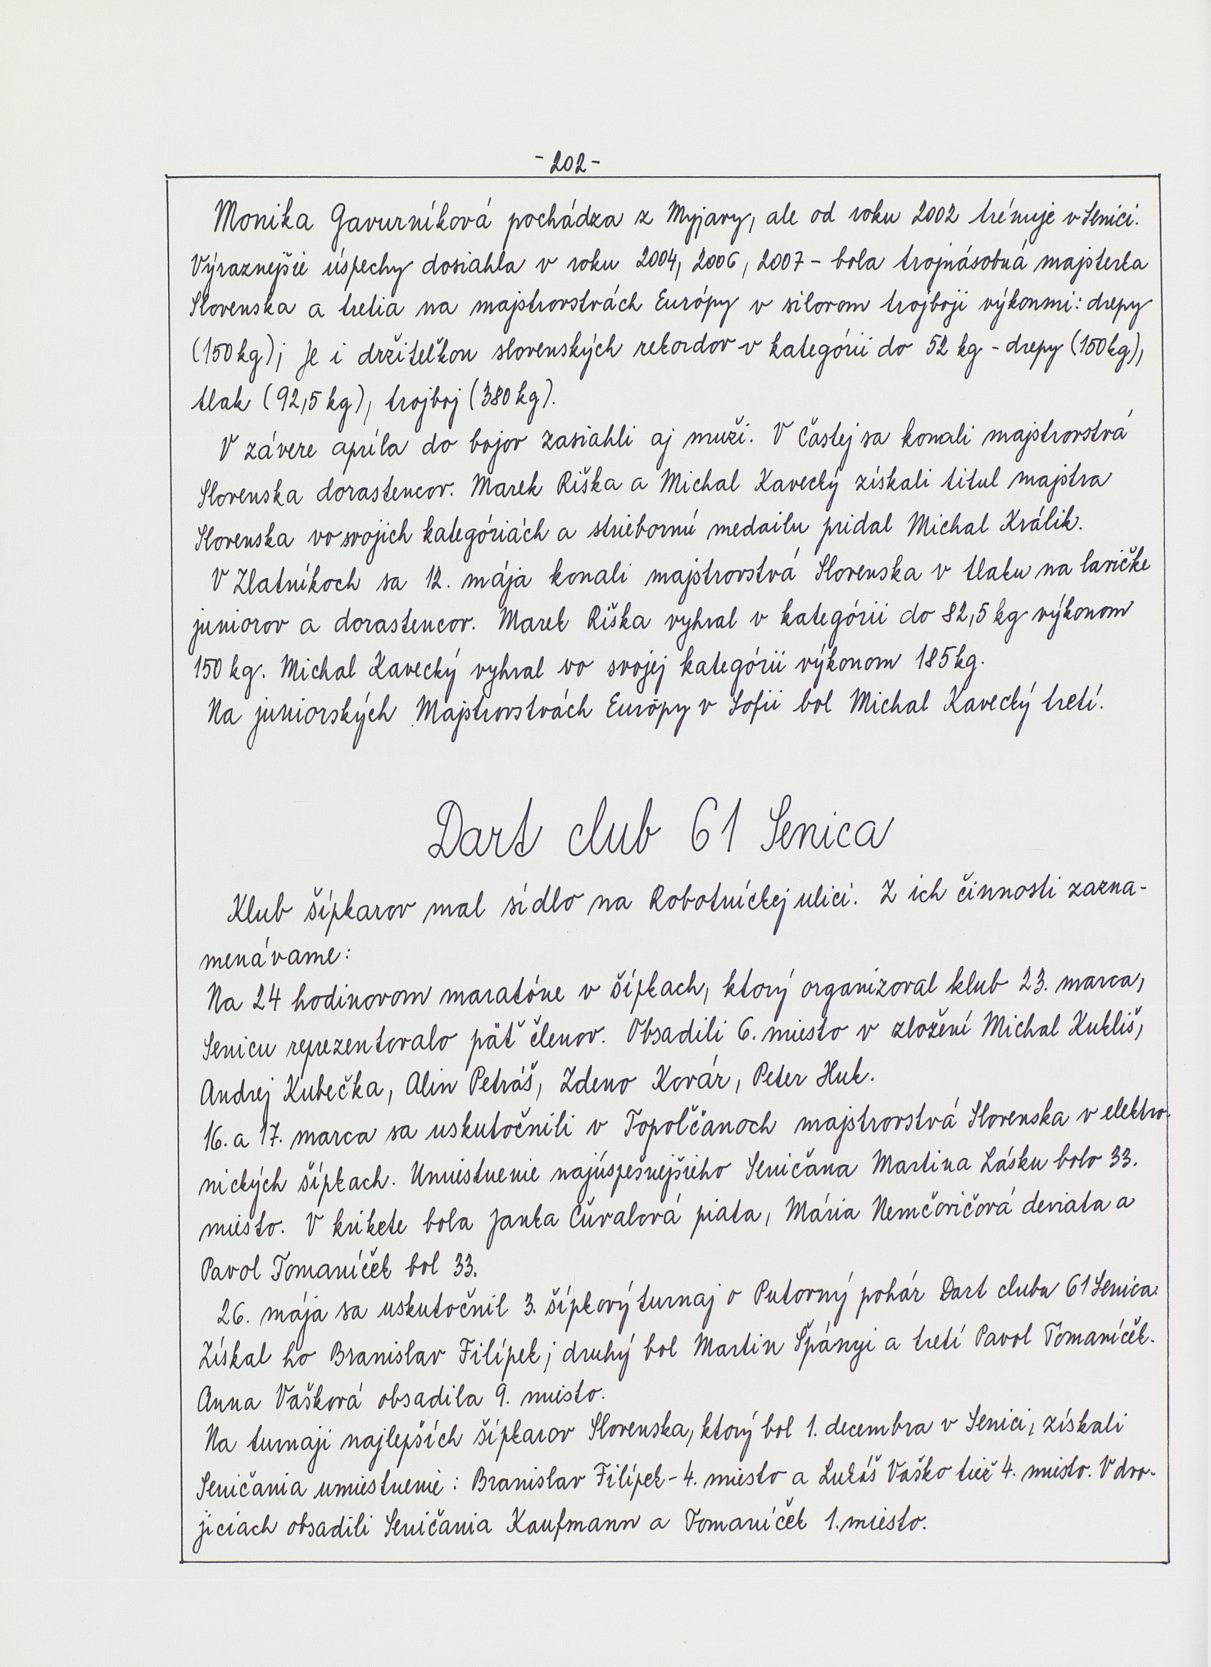 -202-
Monika Gavurníková pochádza z Myjavy, ale od roku 2002 trénuje v Senici.
Výraznejšie úspechy dosiahla v roku 2004, 2006, 2007 - bola trojnásobná majsterka
Slovenska a tretia na majstrovstvách Európy v silovom trojboji výkonmi: drepy
(150kg); Je i držiteľkou slovenských rekordov v kategórii do 52 kg - drepy (150kg),
tlak (92,5kg), trojboj (380kg).
V závere apríla do bojov zasiahli aj muži. V Častej sa konali majstrovstvá
Slovenska dorastencov. Marek Riška a Michal Kavecký získali titul majstra
Slovenska vo svojich kategóriách a striebornú medailu pridal Michal Králik.
V Zlatníkoch sa 12. mája konali majstrovstvá Slovenska v tlaku na lavičke
juniorov a dorastencov. Marek Riška vyhral v kategórii do 82,5 kg výkonom
150 kg. Michal Kavecký vyhral vo svojej kategórii výkonom 185kg.
Na juniorských Majstrovstvách Európy v Sofii bol Michal Kavecký tretí.
Dart club 61 Senica
Klub šípkarov mal sídlo na Robotníckej ulici. Z ich činnosti zazna-
menávame:
Na 24 hodinovom maratóne v šípkach, ktorý organizoval klub 23. marca,
Senicu reprezentovalo päť členov. Obsadili 6. miesto v zložení Michal Kukliš,
Andrej Kubečka, Alin Petráš, Zdeno Kovár, Peter Huk.
16. a 17. marca sa uskutočnili v Topoľčanoch majstrovstvá Slovenska v elektro-
nických šípkach. Umiestnenie najúspešnejšieho Seničana Martina Lásku bolo 33.
miesto. V krikete bola Janka Čuvalová piata, Mária Nemčovičová deviata a
Pavol Tomaníček bol 33.
26. mája sa uskutočnil 3. šípkový turnaj o Putovný pohár Dart clubu 61 Senica.
Získal ho Branislav Filípek; druhý bol Martin Špányi a tretí Pavol Tomaníček.
Anna Vašková obsadila 9. miesto.
Na turnaji najlepších šípkarov Slovenska, ktorý bol 1. decembra v Senici, získali
Seničania umiestnenie: Branislav Filípek - 4. miesto a Lukáš Vaško tiež 4. miesto. V dvo-
jiciach obsadili Seničania Kaufmann a Tomaníček 1. miesto.